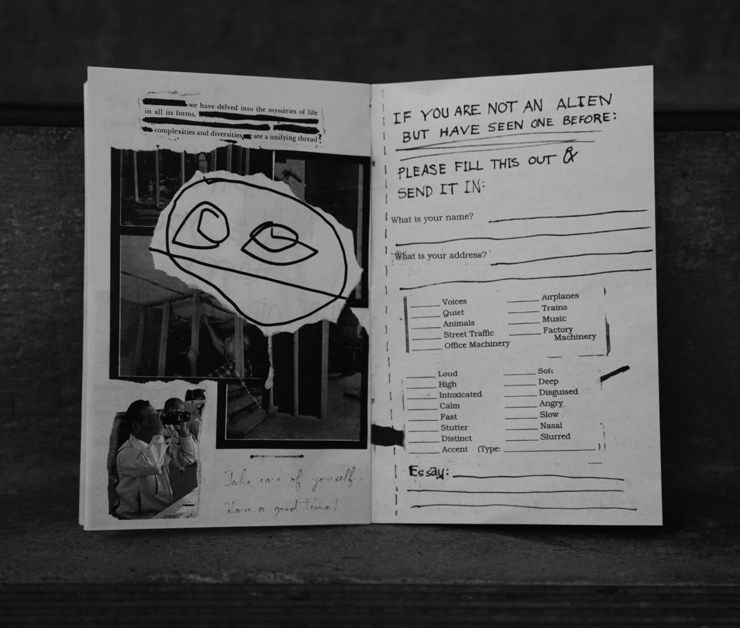 we have delved into the mysteries of life
in all its forms,
complexities and diversities see a unifying thread
Take care of yourself.
Have a good time!
IF YOU ARE NOT AN ALIEN
BUT HAVE SEEN ONE BEFORE:
PLEASE FILL THIS OUT &
SEND IT IN:
What is your name?
What is your address?
Voices Airplanes
Quiet Trains
Animals Music
Street Traffic Factory
Office Machinery Machinery
Loud Soft
High Deep
Intoxicated Disguised
Calm Angry
Fast Slow
Stutter Nasal
Distinct Slurred
Accent (Type: )
Essay: